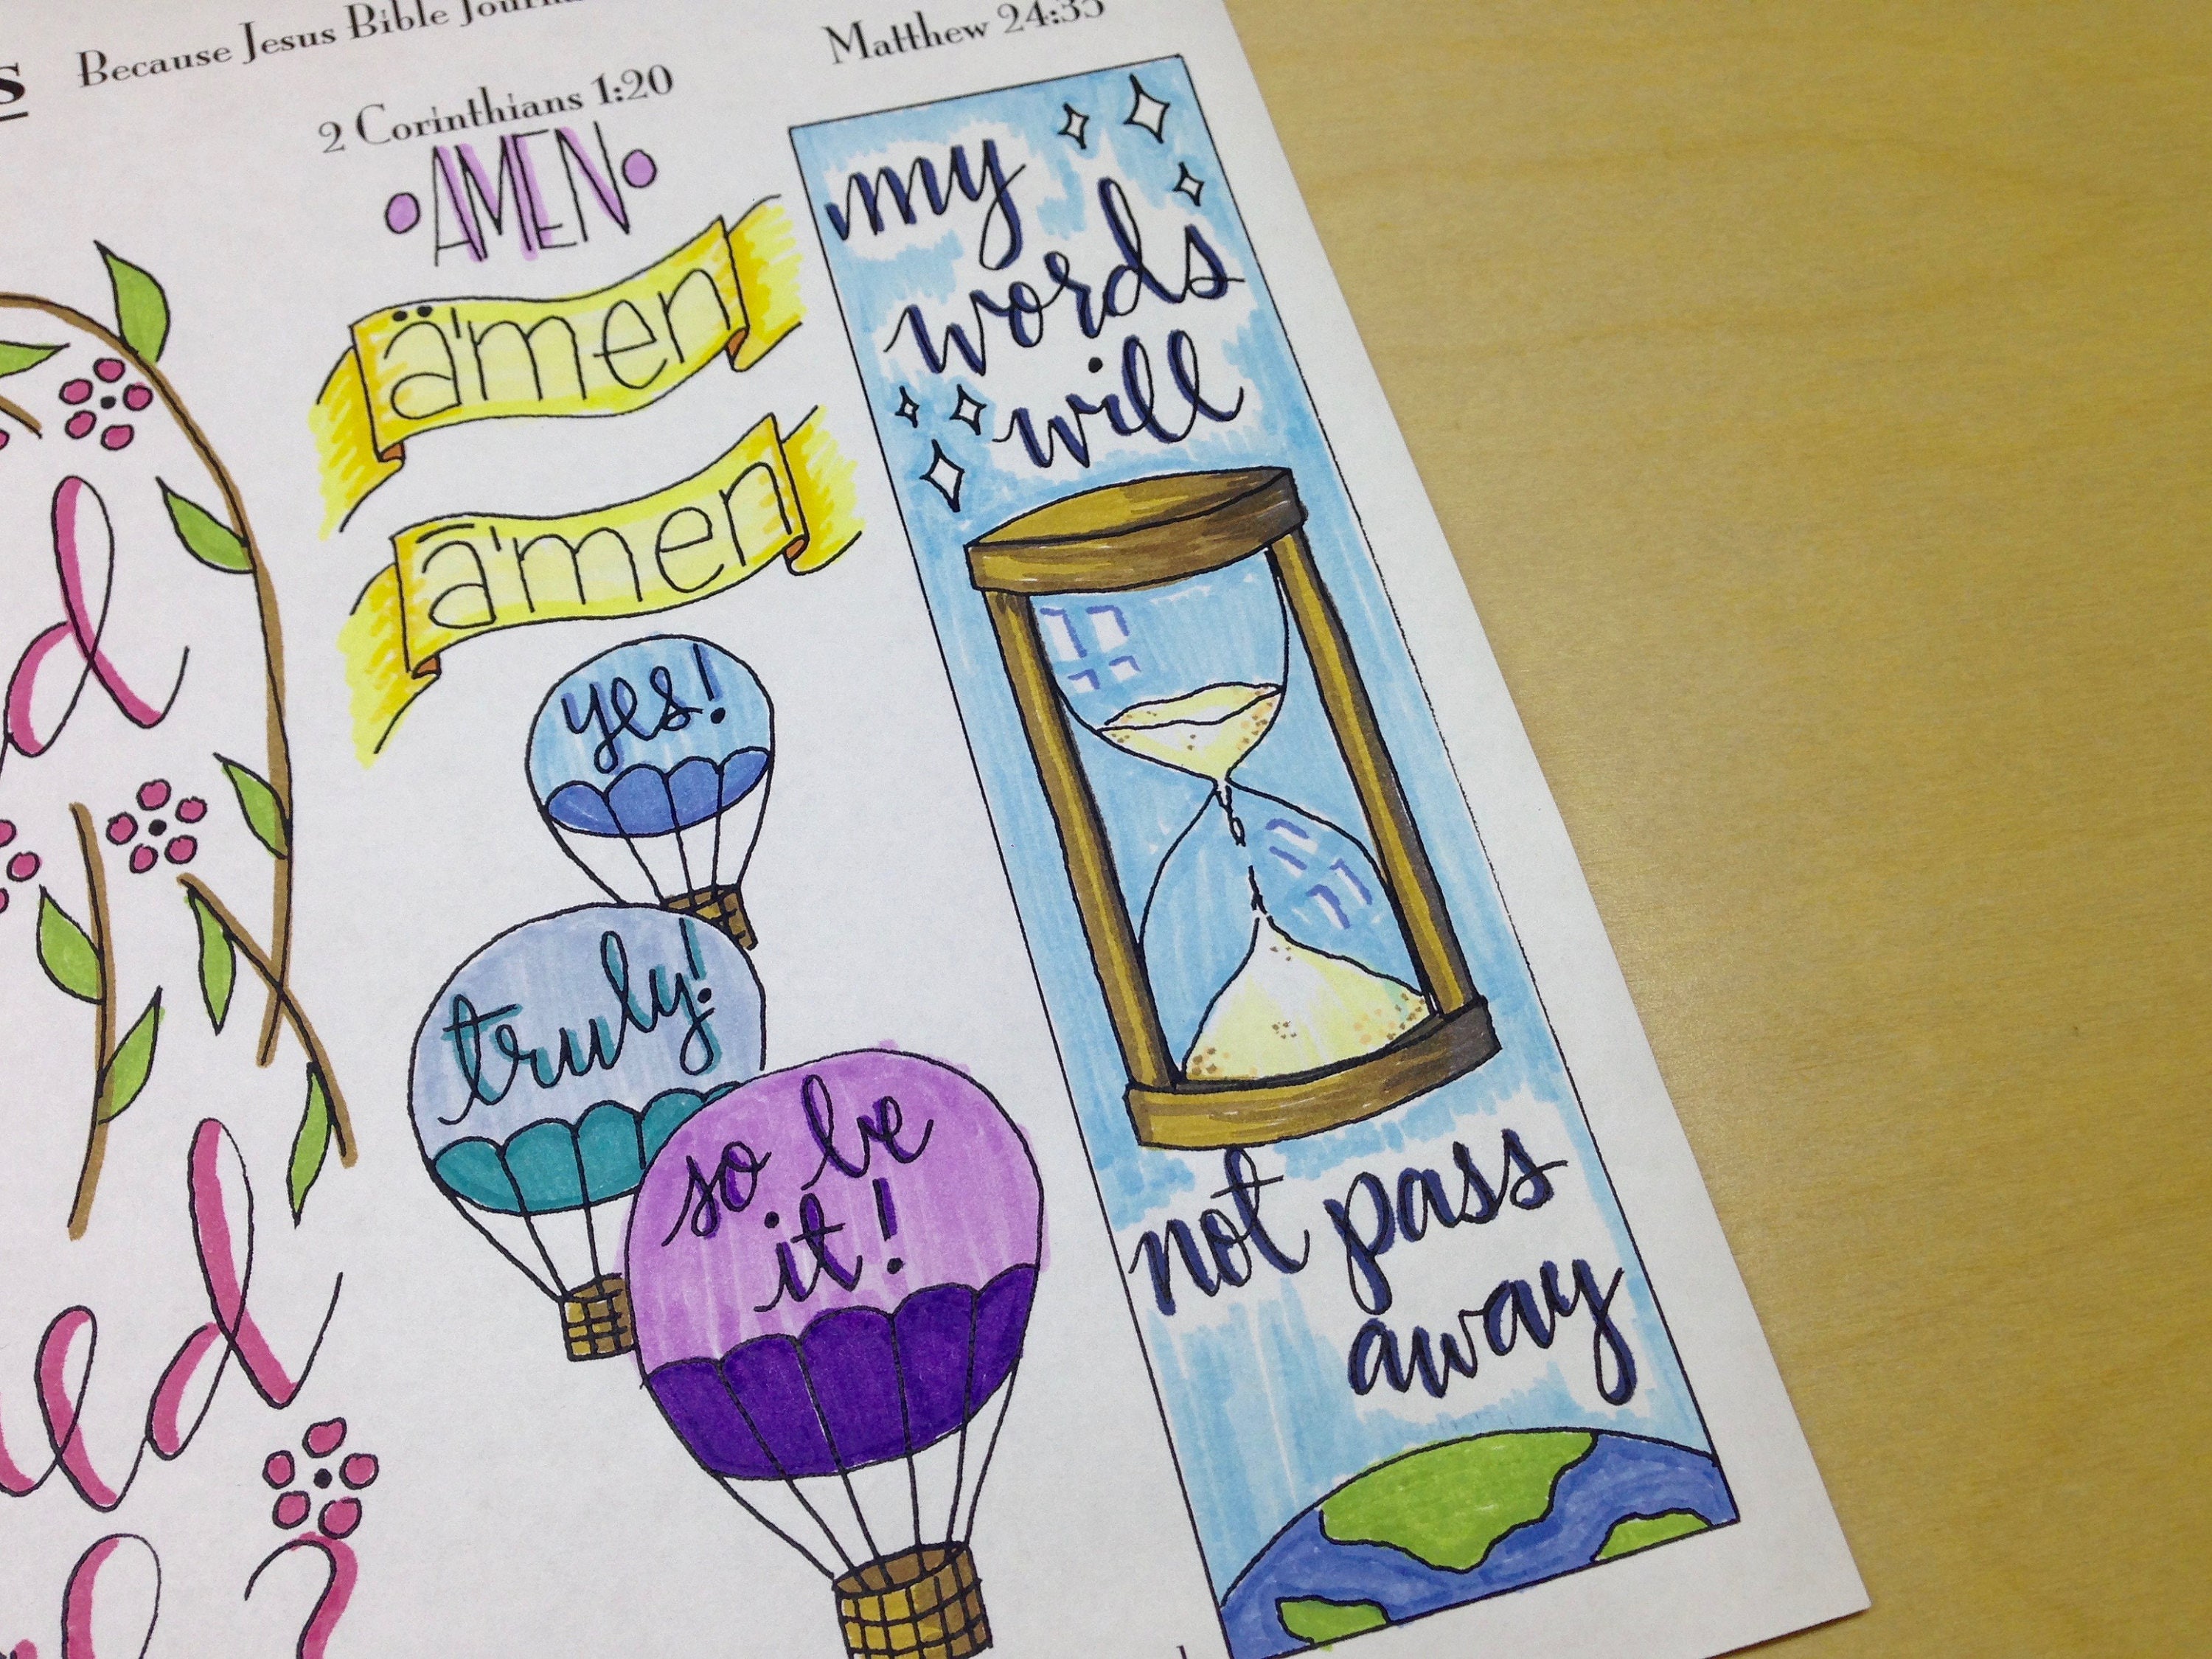 Because Jesus Bible
2 Corinthians 1:20
AMEN
ä'men
ā'men
yes!
truly!
so be
it!
Matthew 24:35
my
words
will
not pass
away